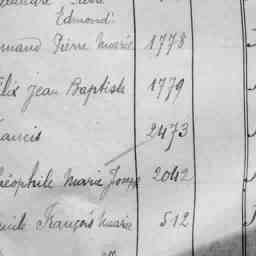 Edmond
Pierre Marie 1778
Jean Baptiste 1779
2473
Théophile Marie Joseph 2042
François Marie 512